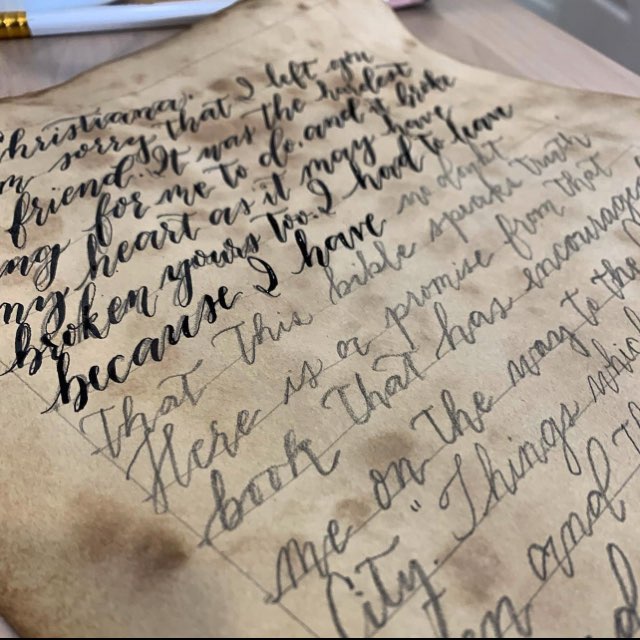 Christiana,
sorry that I left you
friend. It was the hardest
for me to do, and it broke
my heart as it may have
broken yours too. I had to leave
because I have no doubt
that this bible speaks truth
Here is a promise from that
book that has encouraged
me on the way to the
City. "Things which
and